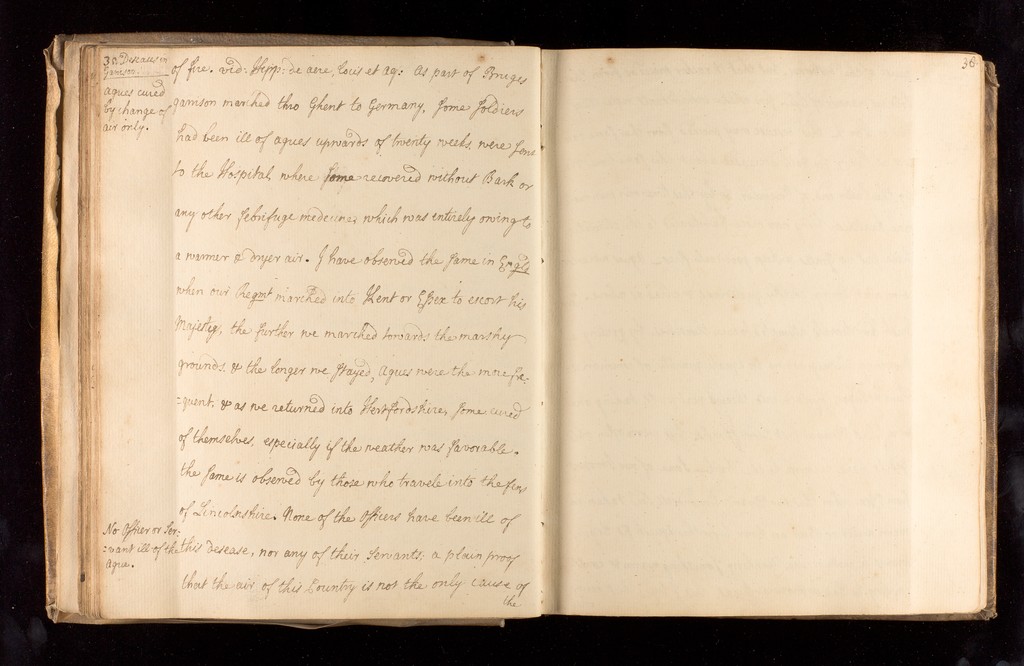 35. Deseases in
Garrison.
agues cured
by change of
air only.
of fire. vid: Hipp: de aere, locis et aq: As part of Bruges
garrison marched thro Ghent to Germany, some soldiers
had been ill of agues upwards of twenty weeks, were sent
to the Hospital, where some recovered without Bark or
any other febrifuge medecine, which was entirely owing to
a warmer & dryer air. I have observed the same in Engld
when our Regmt marched into Kent or Essex to escort his
Majesty, the further we marched towards the marshy
grounds, & the longer we stayed, Agues were the more fre:
:quent, & as we returned into Hertfordshire, some cured
of themselves, especially if the weather was favorable.
the same is observed by those who travele into the fens
of Lincolnshire. None of the Officers have been ill of
No Officer or Ser:
:vant ill of the
Ague.
this desease, nor any of their servants; a plain proof
that the air of this Country is not the only cause of
the
36